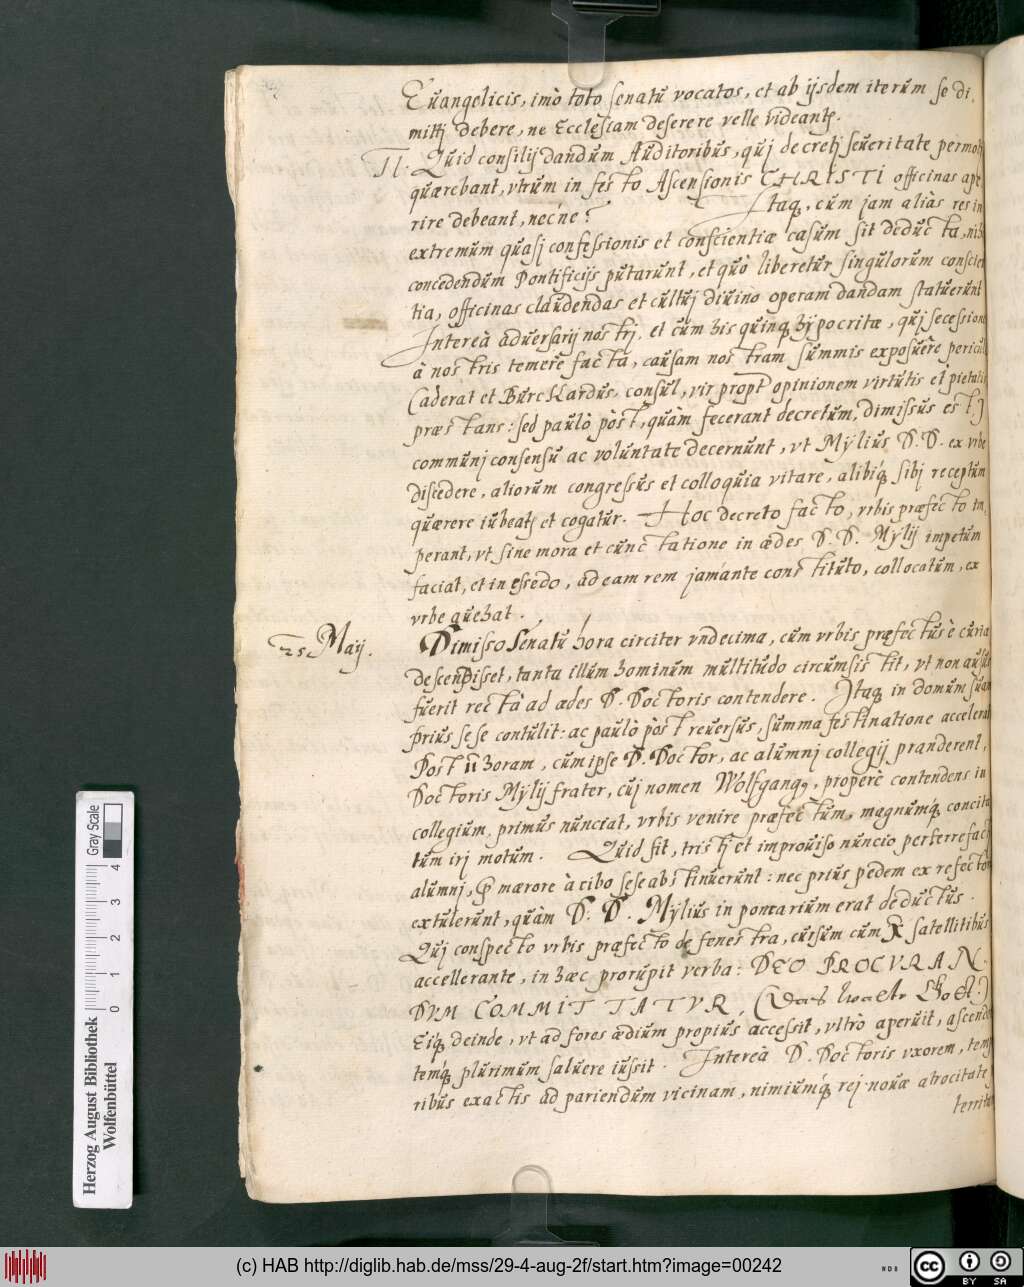 Euangelicis, imò toto senatu vocatos, et ab ijsdem iterum se di,
mittj debere, ne Ecclesiam deserere velle videantr.
II. Quid consilij dandum Auditoribus, quj decretj seueritate permotj
quærebant, vtrum in festo Ascensionis CHRISTI officinas ape,
rire debeant, nec'ne? Itaq, cùm jam aliàs res in
extremum quasj confessionis et conscientiæ casum sit deducta, nihil
concedendum Pontificijs putarunt, et quò liberetur singulorum conscien
tia, officinas claudendas et cultuj diuino operam dandam statuerunt
Intereà aduersarij nostrj, et cum his quinq hypocritæ, quj secessione
à nostris temerè facta, causam nostram summis exposuêre pericul
(aderat et Burckardus, consul, vir propt opinionem virtutis et pietatis
præstans: sed paulò pòst, quàm fecerant decretum, dimissus est.)
communj consensu ac voluntate decernunt, vt Mÿlius D. D. ex vrbe
discedere, aliorum congressus et colloquia vitare, alibiq sibj receptum
quærere iubeatr et cogatur. Hoc decreto facto, vrbis præfecto im,
perant, vt sine mora et cunctatione in ædes D. D. Mÿlij impetum
faciat, et in essedo, ad eam rem jam ante constituto, collocatum, ex
vrbe auehat.
25 Maÿ. Dimisso Senatu hora circiter vndecima, cum vrbis præfectus è curia
descendisset, tanta illum hominum multitudo circumsistit, vt non ausus
fuerit rectà ad ædes D. Doctoris contendere. Itaq in domum suam
prius sese contulit: ac paulò pòst reuersus, summa festinatione accelerat
Post 11 horam, cum ipse D. Doctor, ac alumnj collegij pranderent,
Doctoris Mÿlij frater, cuj nomen Wolfgang9, properè contendens in
collegium, primus nunciat, vrbis venire præfectum, magnumq concita
tum irj motum. Quid fit, tristj et improuiso nuncio perterrefactj
alumnj, præ mærore à cibo sese abstinuerunt: nec prius pedem ex refecto
extulerunt, quàm D. D. Mÿlius in pomarium erat deductus.
Quj conspecto vrbis præfecto de fenestra, cursum cum satellitibus
accellerante, in hæc prorupit verba: DEO PROCVRAN-
DVM COMMITTATVR, (Das walt Gott.)
Eiq deinde, vt ad fores ædium propius accessit, vltrò aperuit, ascende
temq plurimum saluere iussit. Intereà D. Doctoris vxorem, temp
ribus exactis ad pariendum vicinam, nimiumq rej nouæ atrocitate
territam
Herzog August Bibliothek
Wolfenbüttel
Gray Scale
0 1 2 3 4
(c) HAB http://diglib.hab.de/mss/29-4-aug-2f/start.htm?image=00242
WDB
cc BY SA